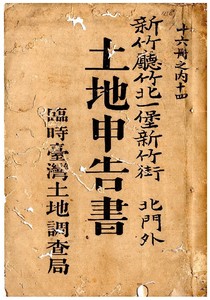 十六冊之內十四
新竹廳竹北一堡新竹街 北門外
土地申告書
臨時臺灣土地調查局